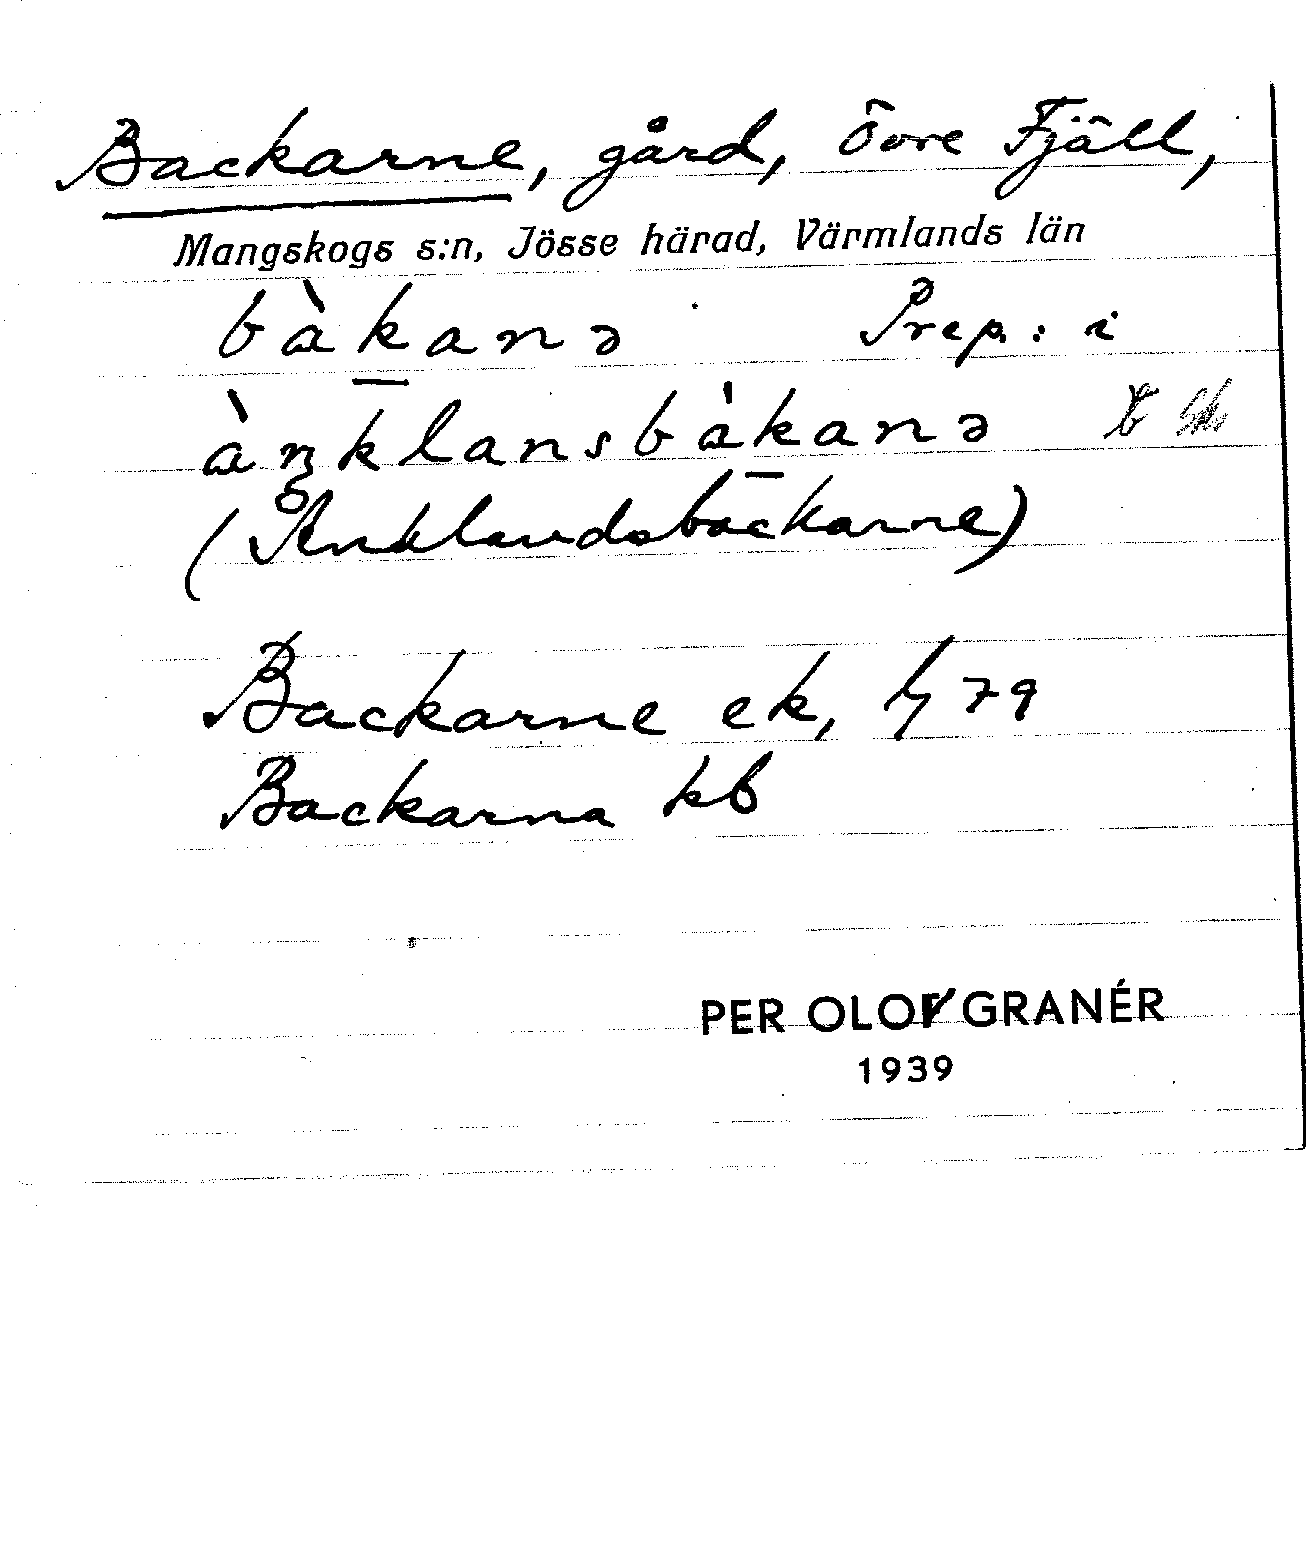 Backarne, gård, Övre Fjäll,
Mangskogs s:n, Jösse härad, Värmlands län
bàkanə Prep.: i
àŋklansbàkanə
(Ånklandsbackarne)
Backarne ek, hj 79
Backarna kb
PER OLOF GRANÉR
1939